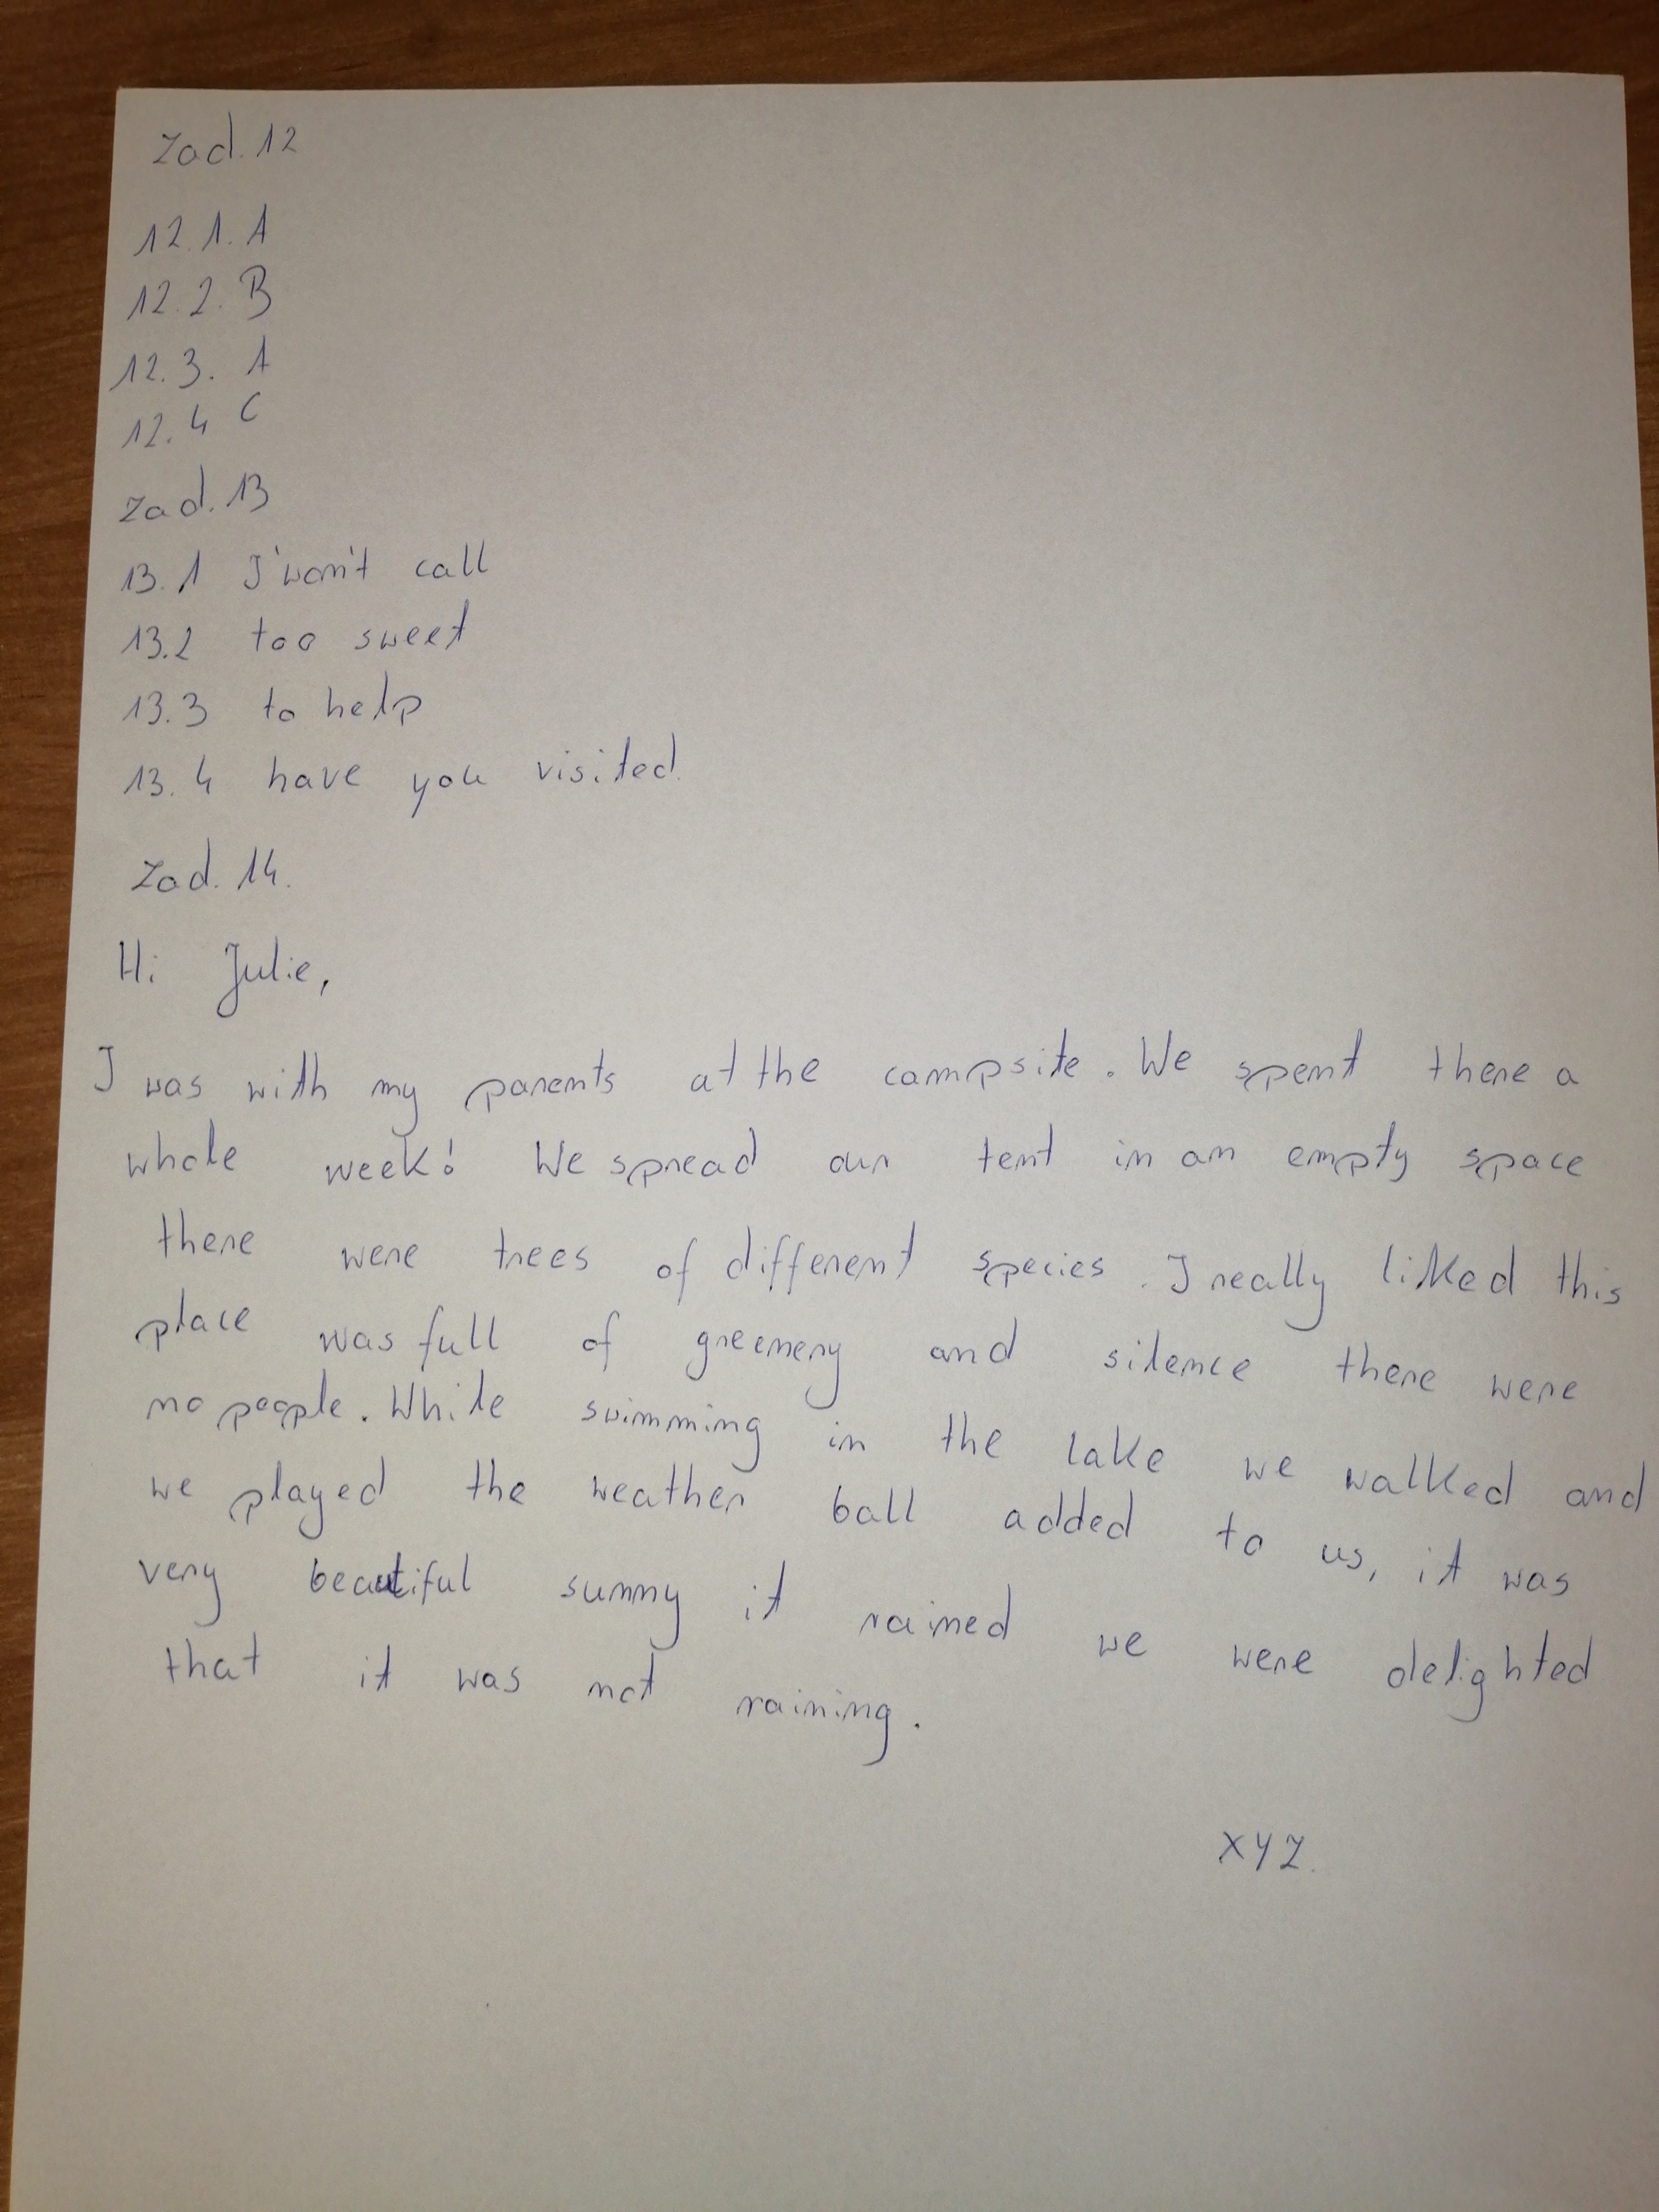 Zad. 12
12.1. A
12.2. B
12.3. A
12.4 C
Zad. 13
13.1 I'won't call
13.2 too sweet
13.3 to help
13.4 have you visited.
Zad. 14.
Hi Julie,
I was with my parents at the campsite. We spent there a
whole week! We spread our tent in an empty space
there were trees of different species. I really liked this
place was full of greenery and silence there were
no people. While swimming in the lake we walked and
we played the weather ball added to us, it was
very beautiful sunny it rained we were delighted
that it was not raining.
XYZ.